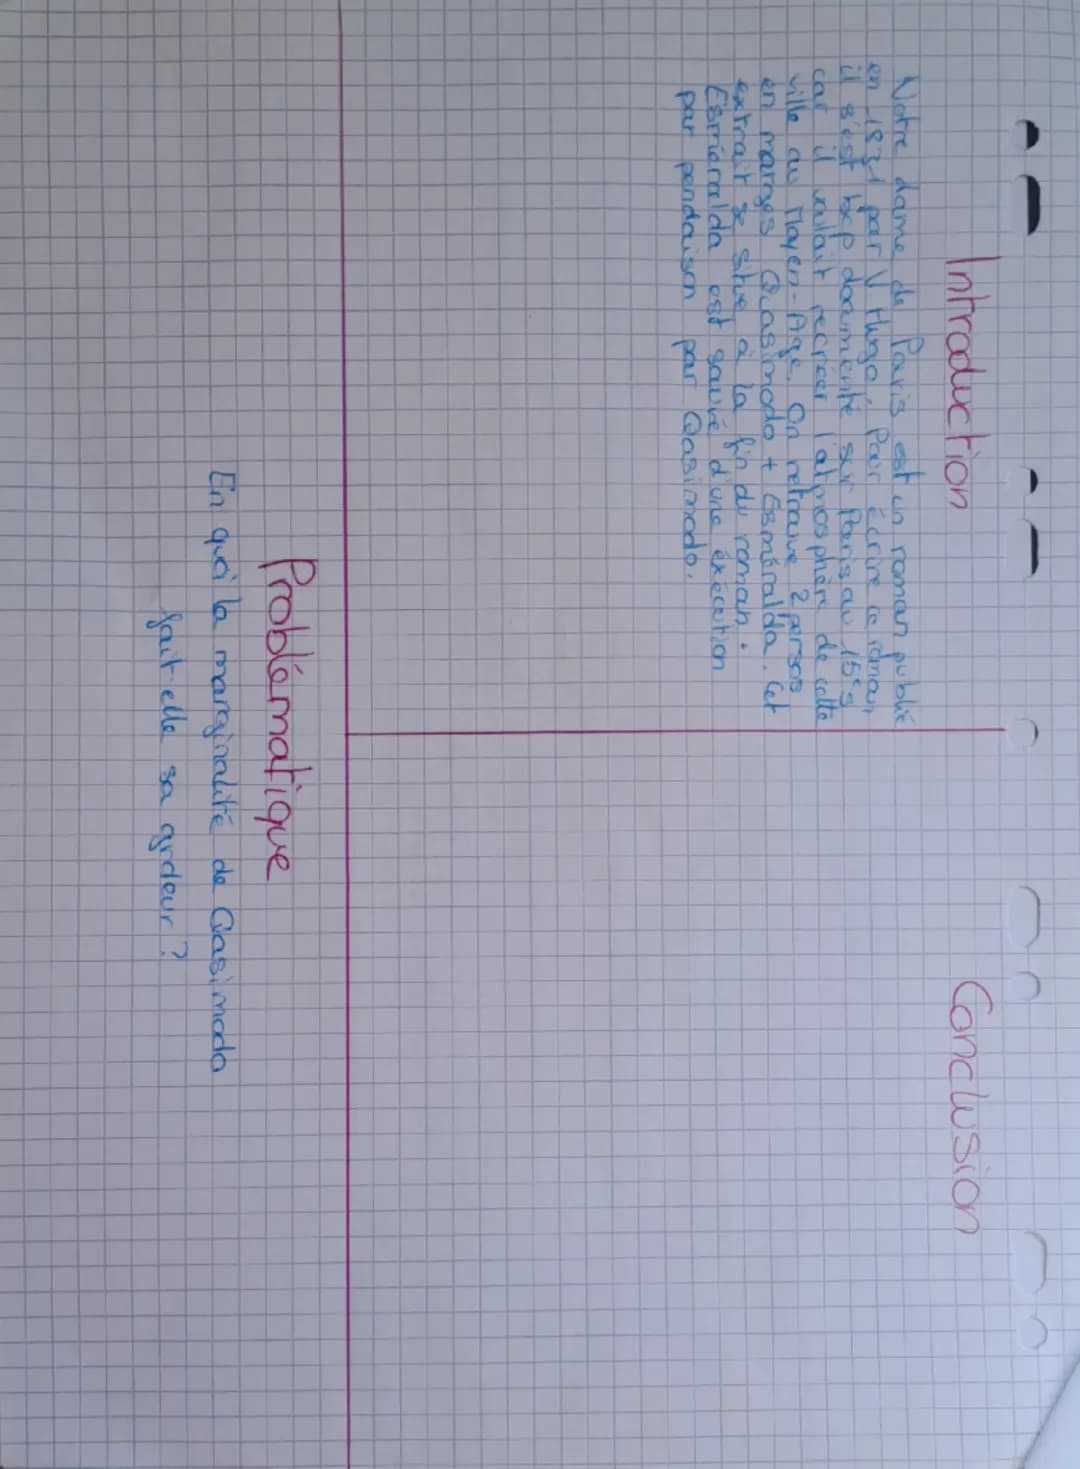 Introduction
Notre dame de Paris est un roman publié
en 1831 par V Hugo. Pour écrire ce roman,
il s'est bcp documenté sur Paris au 15e s
car il voulait recréer l'atmosphère de cette
ville au Moyen-Age. On retrouve 2 persos
en marges Quasimodo + Esméralda. Cet
extrait se situe à la fin du roman.
Esméralda est sauvé d'une éxecution
par pendaison par Qasimodo.
Conclusion
Problématique
En quoi la marginalité de Qasimodo
fait-elle sa grdeur ?